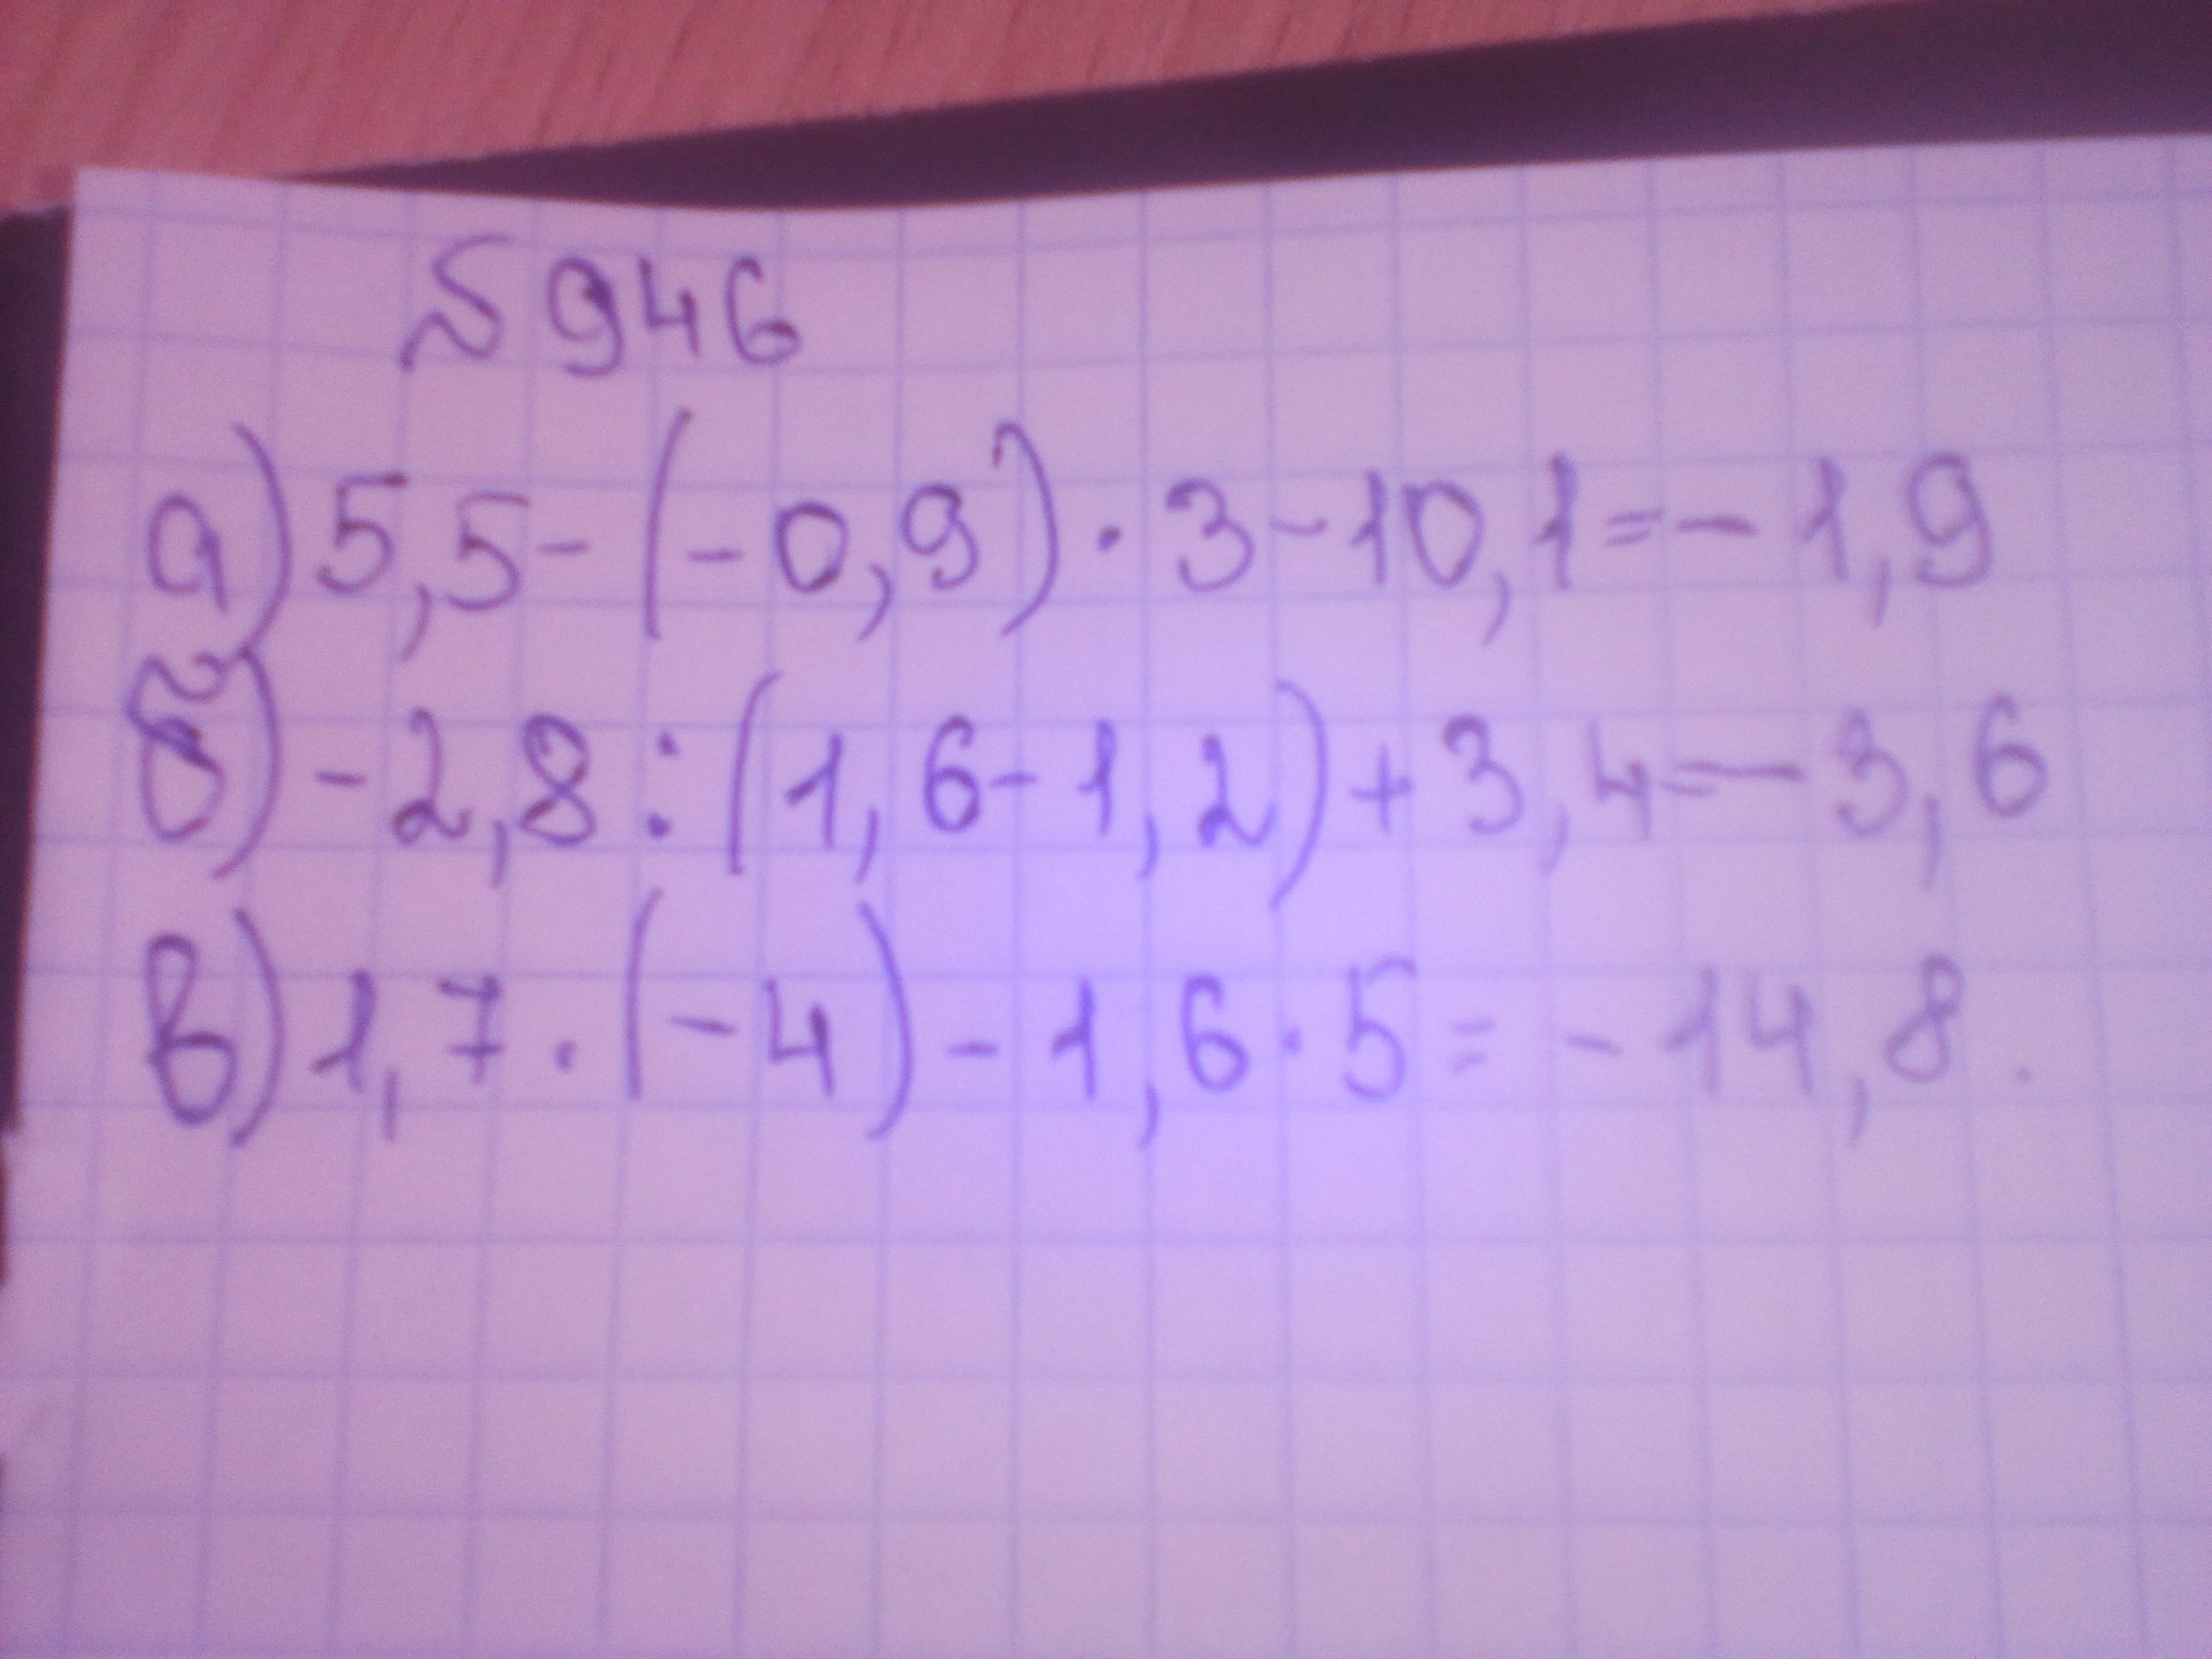 №946
а) 5,5-(-0,9)·3-10,1=-1,9
б) -2,8:(1,6-1,2)+3,4=-3,6
в) 1,7·(-4)-1,6·5=-14,8.